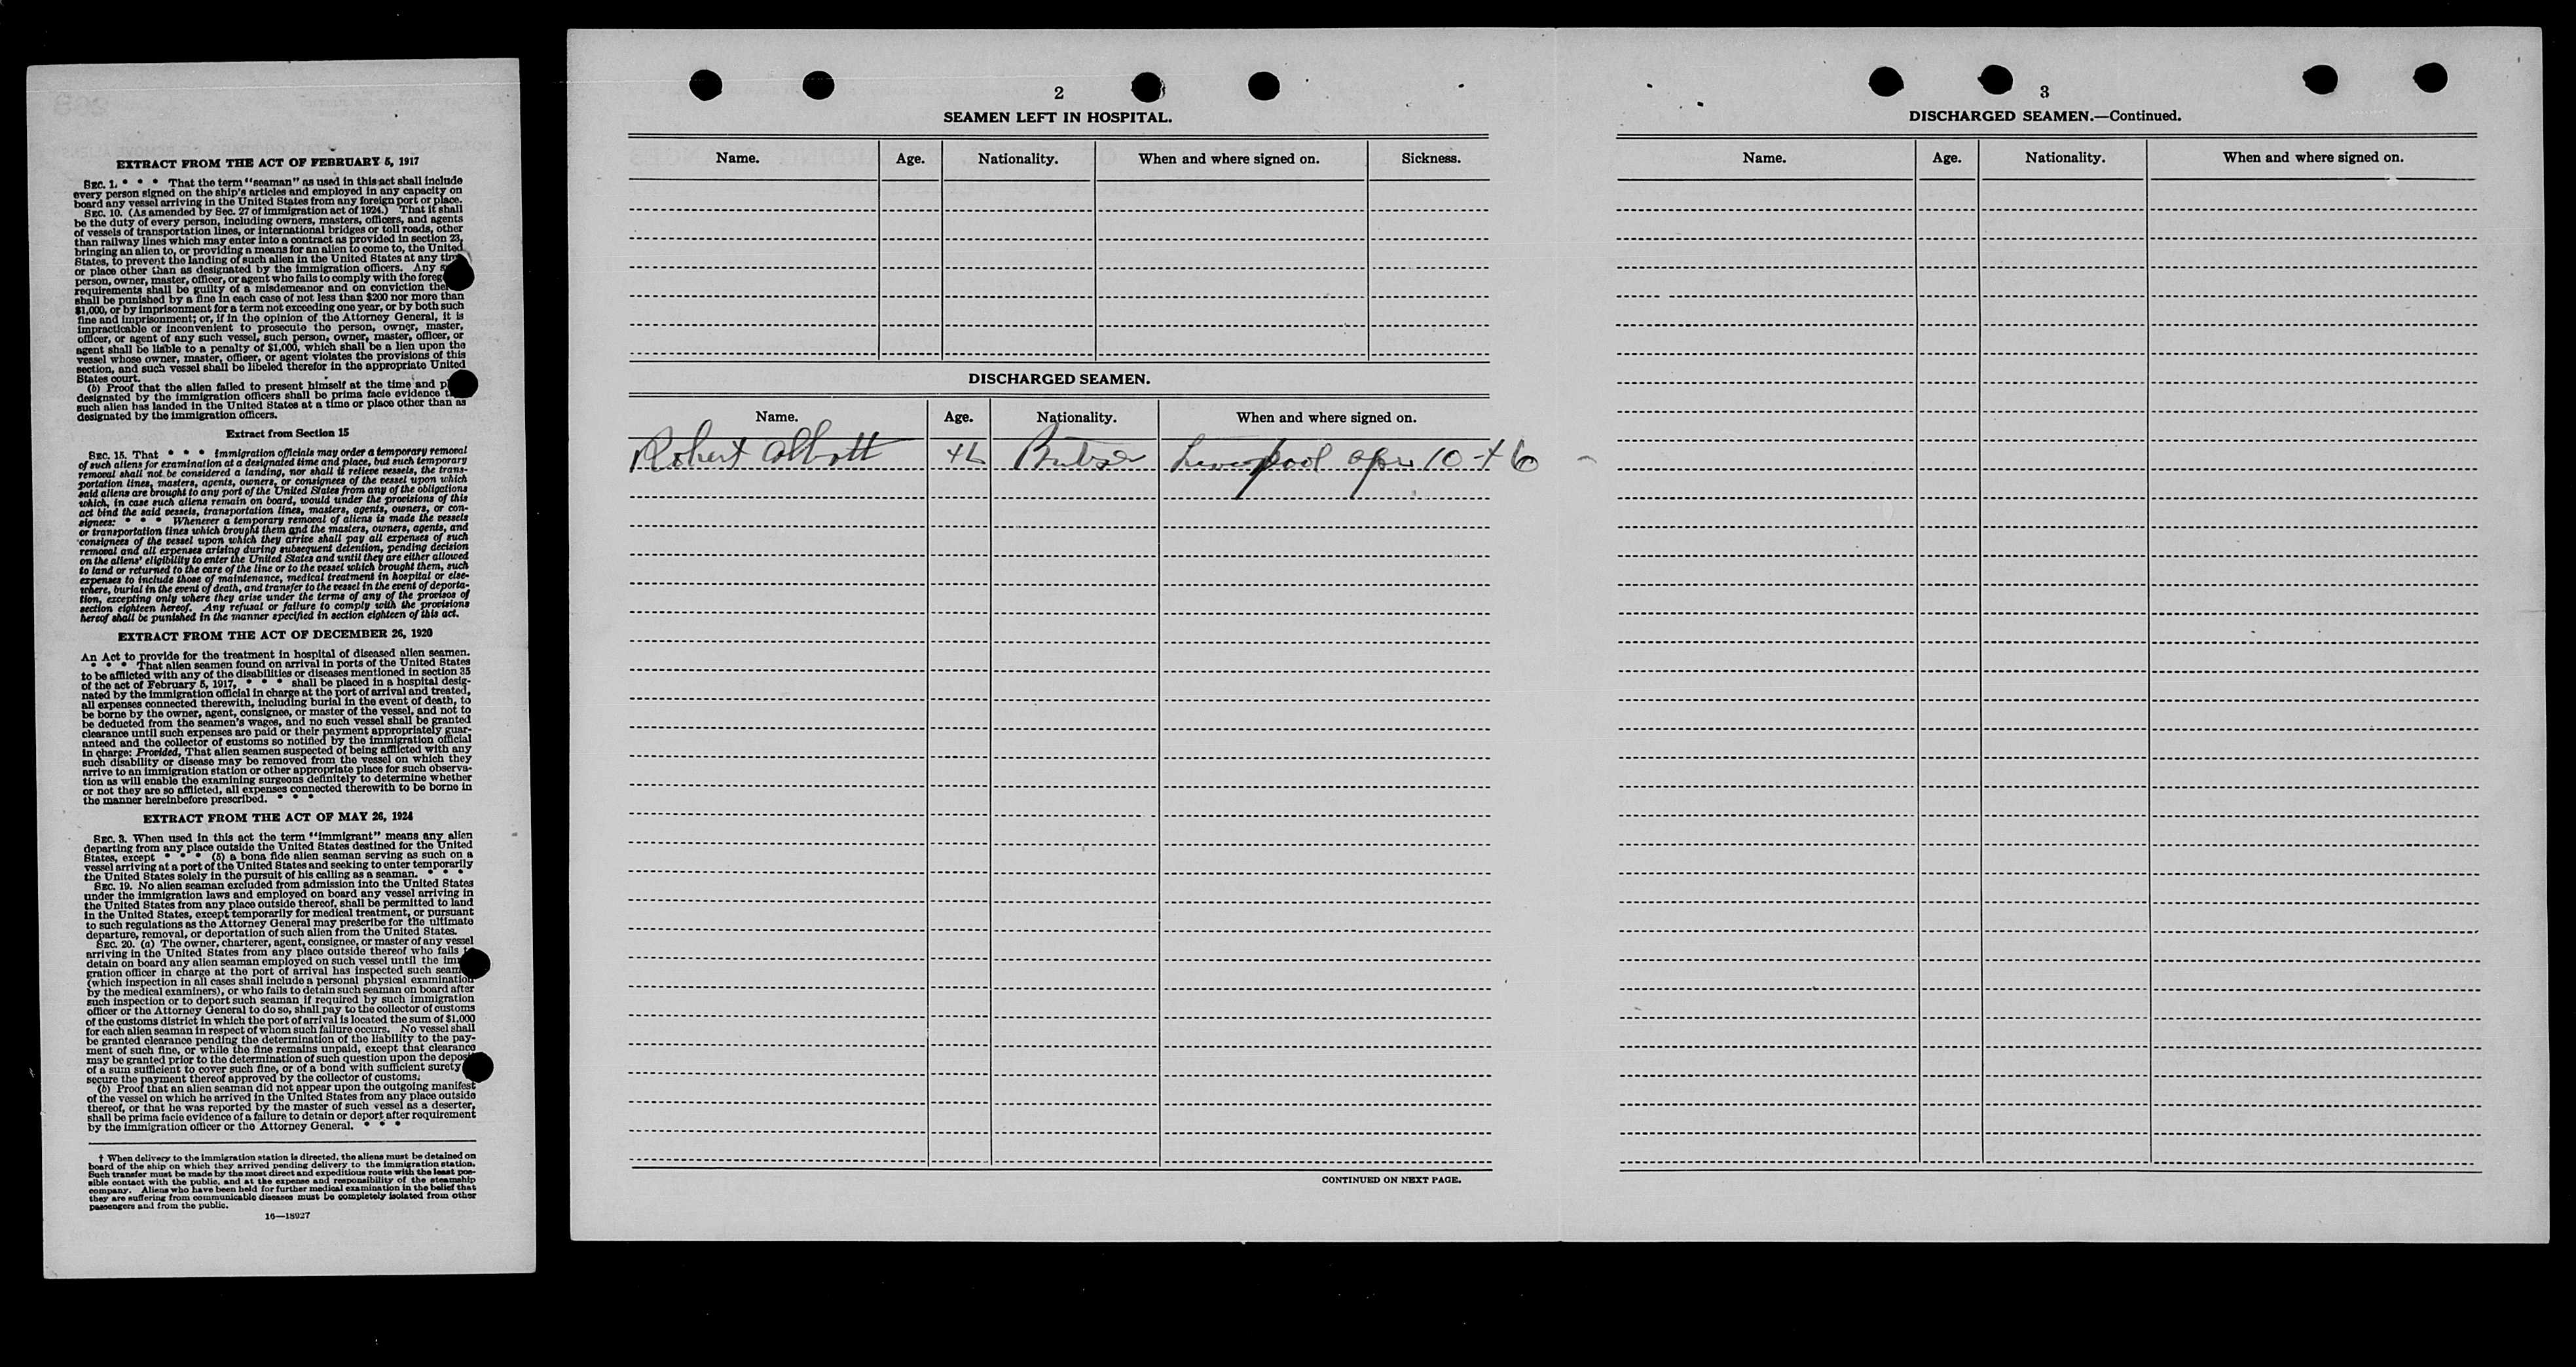 EXTRACT FROM THE ACT OF FEBRUARY 5, 1917
SEC. 1. * * * That the term "seaman" as used in this act shall include
every person signed on the ship's articles and employed in any capacity on
board any vessel arriving in the United States from any foreign port or place.
SEC. 10. (As amended by Sec. 27 of immigration act of 1924.) That it shall
be the duty of every person, including owners, masters, officers, and agents
of vessels of transportation lines, or international bridges or toll roads, other
than railway lines which may enter into a contract as provided in section 23,
bringing an alien to, or providing a means for an alien to come to, the United
States, to prevent the landing of such alien in the United States at any
or place other than as designated by the immigration officers. Any
person, owner, master, officer, or agent who fails to comply with the
requirements shall be guilty of a misdemeanor and on conviction
shall be punished by a fine in each case of not less than $200 nor more than
$1,000, or by imprisonment for a term not exceeding one year, or by both such
fine and imprisonment; or, if in the opinion of the Attorney General, it is
impracticable or inconvenient to prosecute the person, owner, master,
officer, or agent of any such vessel, such person, owner, master, officer, or
agent shall be liable to a penalty of $1,000, which shall be a lien upon the
vessel whose owner, master, officer, or agent violates the provisions of this
section, and such vessel shall be libeled therefor in the appropriate United
States court.
(b) Proof that the alien failed to present himself at the time and
designated by the immigration officers shall be prima facie evidence
such alien has landed in the United States at a time or place other than as
designated by the immigration officers.
Extract from Section 15
SEC. 15. That * * * immigration officials may order a temporary removal
of such aliens for examination at a designated time and place, but such temporary
removal shall not be considered a landing, nor shall it relieve vessels, the trans-
portation lines, masters, agents, owners, or consignees of the vessel upon which
said aliens are brought to any port of the United States from any of the obligations
which, in case such aliens remain on board, would under the provisions of this
act bind the said vessels, transportation lines, masters, agents, owners, or con-
signees: * * * Whenever a temporary removal of aliens is made the vessels
or transportation lines which brought them and the masters, owners, agents, and
consignees of the vessel upon which they arrive shall pay all expenses of such
removal and all expenses arising during subsequent detention, pending decision
on the aliens' eligibility to enter the United States and until they are either allowed
to land or returned to the care of the line or to the vessel which brought them, such
expenses to include those of maintenance, medical treatment in hospital or else-
where, burial in the event of death, and transfer to the vessel in the event of deporta-
tion, excepting only where they arise under the terms of any of the provisos of
section eighteen hereof. Any refusal or failure to comply with the provisions
hereof shall be punished in the manner specified in section eighteen of this act.
EXTRACT FROM THE ACT OF DECEMBER 26, 1920
An Act to provide for the treatment in hospital of diseased alien seamen.
* * * That alien seamen found on arrival in ports of the United States
to be afflicted with any of the disabilities or diseases mentioned in section 35
of the act of February 5, 1917, * * * shall be placed in a hospital desig-
nated by the immigration official in charge at the port of arrival and treated,
all expenses connected therewith, including burial in the event of death, to
be borne by the owner, agent, consignee, or master of the vessel, and not to
be deducted from the seamen's wages, and no such vessel shall be granted
clearance until such expenses are paid or their payment appropriately guar-
anteed and the collector of customs so notified by the immigration official
in charge: Provided, That alien seamen suspected of being afflicted with any
such disability or disease may be removed from the vessel on which they
arrive to an immigration station or other appropriate place for such observa-
tion as will enable the examining surgeons definitely to determine whether
or not they are so afflicted, all expenses connected therewith to be borne in
the manner hereinbefore prescribed. * * *
EXTRACT FROM THE ACT OF MAY 26, 1924
SEC. 3. When used in this act the term "immigrant" means any alien
departing from any place outside the United States destined for the United
States, except * * * (5) a bona fide alien seaman serving as such on a
vessel arriving at a port of the United States and seeking to enter temporarily
the United States solely in the pursuit of his calling as a seaman. * * *
SEC. 19. No alien seaman excluded from admission into the United States
under the immigration laws and employed on board any vessel arriving in
the United States from any place outside thereof, shall be permitted to land
in the United States, except temporarily for medical treatment, or pursuant
to such regulations as the Attorney General may prescribe for the ultimate
departure, removal, or deportation of such alien from the United States.
SEC. 20. (a) The owner, charterer, agent, consignee, or master of any vessel
arriving in the United States from any place outside thereof who fails to
detain on board any alien seaman employed on such vessel until the immi-
gration officer in charge at the port of arrival has inspected such seaman
(which inspection in all cases shall include a personal physical examination
by the medical examiners), or who fails to detain such seaman on board after
such inspection or to deport such seaman if required by such immigration
officer or the Attorney General to do so, shall pay to the collector of customs
of the customs district in which the port of arrival is located the sum of $1,000
for each alien seaman in respect of whom such failure occurs. No vessel shall
be granted clearance pending the determination of the liability to the pay-
ment of such fine, or while the fine remains unpaid, except that clearance
may be granted prior to the determination of such question upon the deposit
of a sum sufficient to cover such fine, or of a bond with sufficient surety
secure the payment thereof approved by the collector of customs.
(b) Proof that an alien seaman did not appear upon the outgoing manifest
of the vessel on which he arrived in the United States from any place outside
thereof, or that he was reported by the master of such vessel as a deserter,
shall be prima facie evidence of a failure to detain or deport after requirement
by the immigration officer or the Attorney General. * * *
† When delivery to the immigration station is directed, the aliens must be detained on
board of the ship on which they arrived pending delivery to the immigration station.
Such transfer must be made by the most direct and expeditious route with the least pos-
sible contact with the public, and at the expense and responsibility of the steamship
company. Aliens who have been held for further medical examination in the belief that
they are suffering from communicable diseases must be completely isolated from other
passengers and from the public.
16—18927
2
SEAMEN LEFT IN HOSPITAL.
Name. Age. Nationality. When and where signed on. Sickness.
DISCHARGED SEAMEN.
Name. Age. Nationality. When and where signed on.
Robert Abbott Liverpool Apr 10-46
CONTINUED ON NEXT PAGE.
3
DISCHARGED SEAMEN.—Continued.
Name. Age. Nationality. When and where signed on.